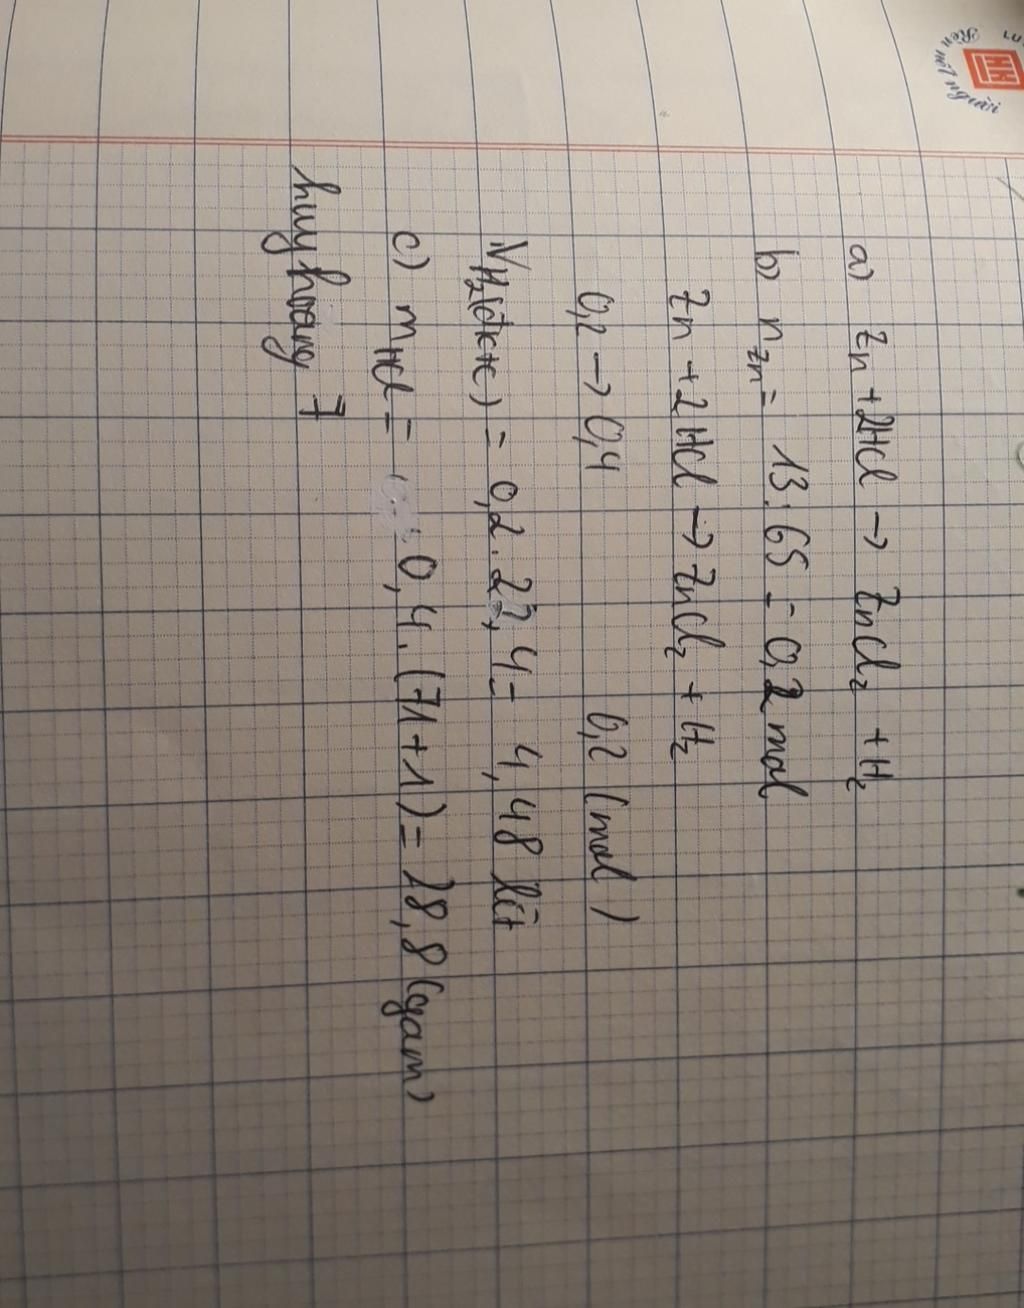 Rèn nét người
a) Zn + 2HCl → ZnCl₂ + H₂
b) nZn = 13 : 65 = 0,2 mol
Zn + 2HCl → ZnCl₂ + H₂
0,2 → 0,4 0,2 (mol)
VH₂(đktc) = 0,2 . 22,4 = 4,48 lít
c) mHCl = 0,4 . (71 + 1) = 28,8 (gam)
huy hoang 7